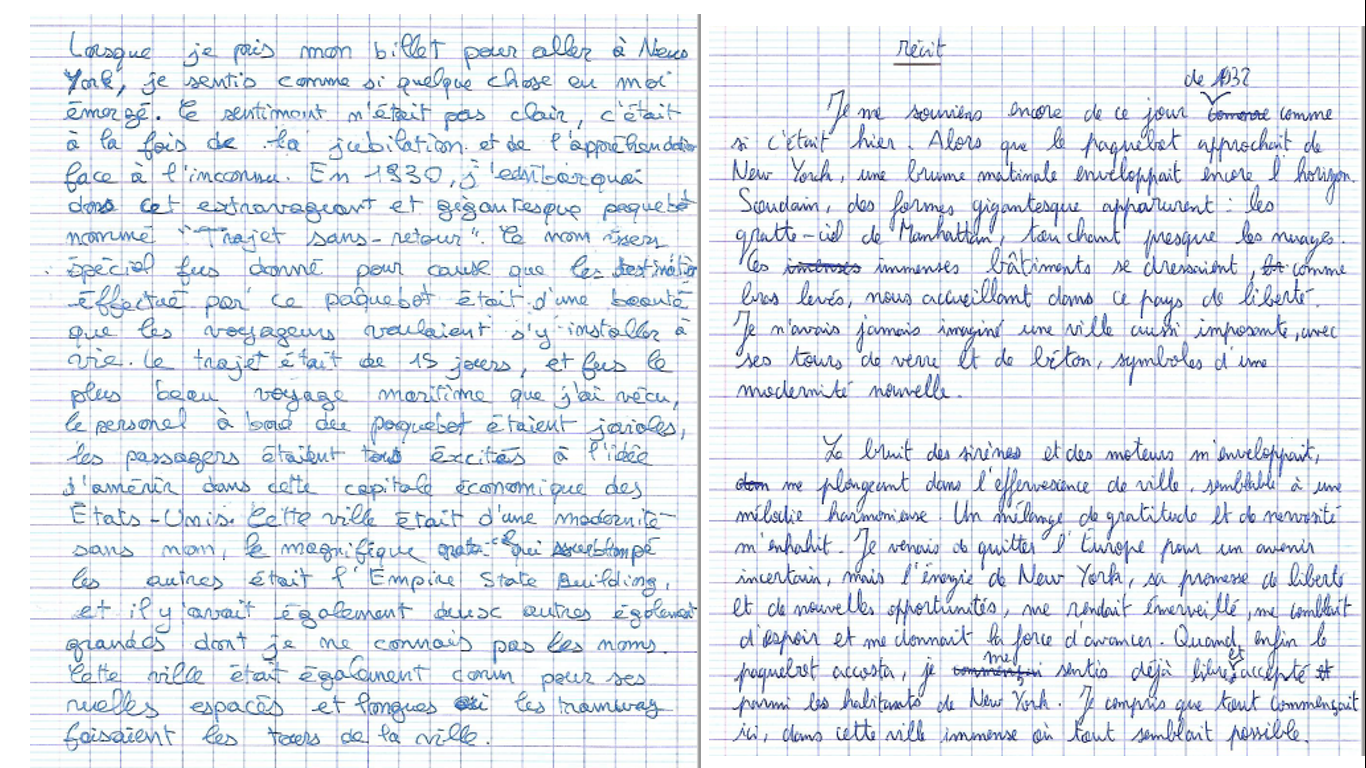 Lorsque je pris mon billet pour aller à New
York, je sentis comme si quelque chose en moi
émergé. Ce sentiment n'était pas clair, c'était
à la fois de la jubilation et de l'appréhendation
face à l'inconnu. En 1930, j'embarquai
dans cet extravageant et gigantesque paquebot
nommé "Trajet sans-retour". Ce nom
spécial fus donné pour cause que les destination
éffectué par ce paquebot était d'une beauté
que les voyageurs voulaient s'y installer à
vie. Le trajet était de 15 jours, et fus le
plus beau voyage maritime que j'ai vécu,
le personel à bord du paquebot étaient joviales,
les passagers étaient tous éxcités à l'idée
d'amérir dans cette capitale économique des
États-Unis. Cette ville était d'une modernité
sans nom, le magnifique qui
les autres était l'Empire State Building,
et il y avait également deux autres égolement
grandes dont je ne connais pas les noms.
Cette ville était également conun pour ses
ruelles espacés et longues les tramway
faisaient les tours de la ville.
récit
de 1932
Je me souviens encore de ce jour comme
si c'était hier. Alors que le paquebot approchait de
New York, une brume matinale enveloppait encore l'horizon.
Soudain, des formes gigantesque apparurent : les
gratte-ciel de Manhattan, touchant presque les nuages.
Ces immenses bâtiments se dressaient, comme
bras levés, nous accueillant dans ce pays de liberté.
Je n'avais jamais imaginé une ville aussi imposante, avec
ses tours de verre et de béton, symboles d'une
modernité nouvelle.
Le bruit des sirènes et des moteurs m'enveloppait,
me plongeant dans l'effervescience de ville, semblable à une
mélodie harmonieuse. Un mélange de gratitude et de nervosité
m'enhahit. Je venais de quitter l'Europe pour un avenir
incertain, mais l'énergie de New York, sa promesse de liberté
et de nouvelles opportunités, me rendait émerveillé, me comblait
d'espoir et me donnait la force d'avancer. Quand enfin le
paquebot accosta, je me sentis déjà libre et accepté
parmi les habitants de New York. Je compris que tout commençait
ici, dans cette ville immense où tout semblait possible.